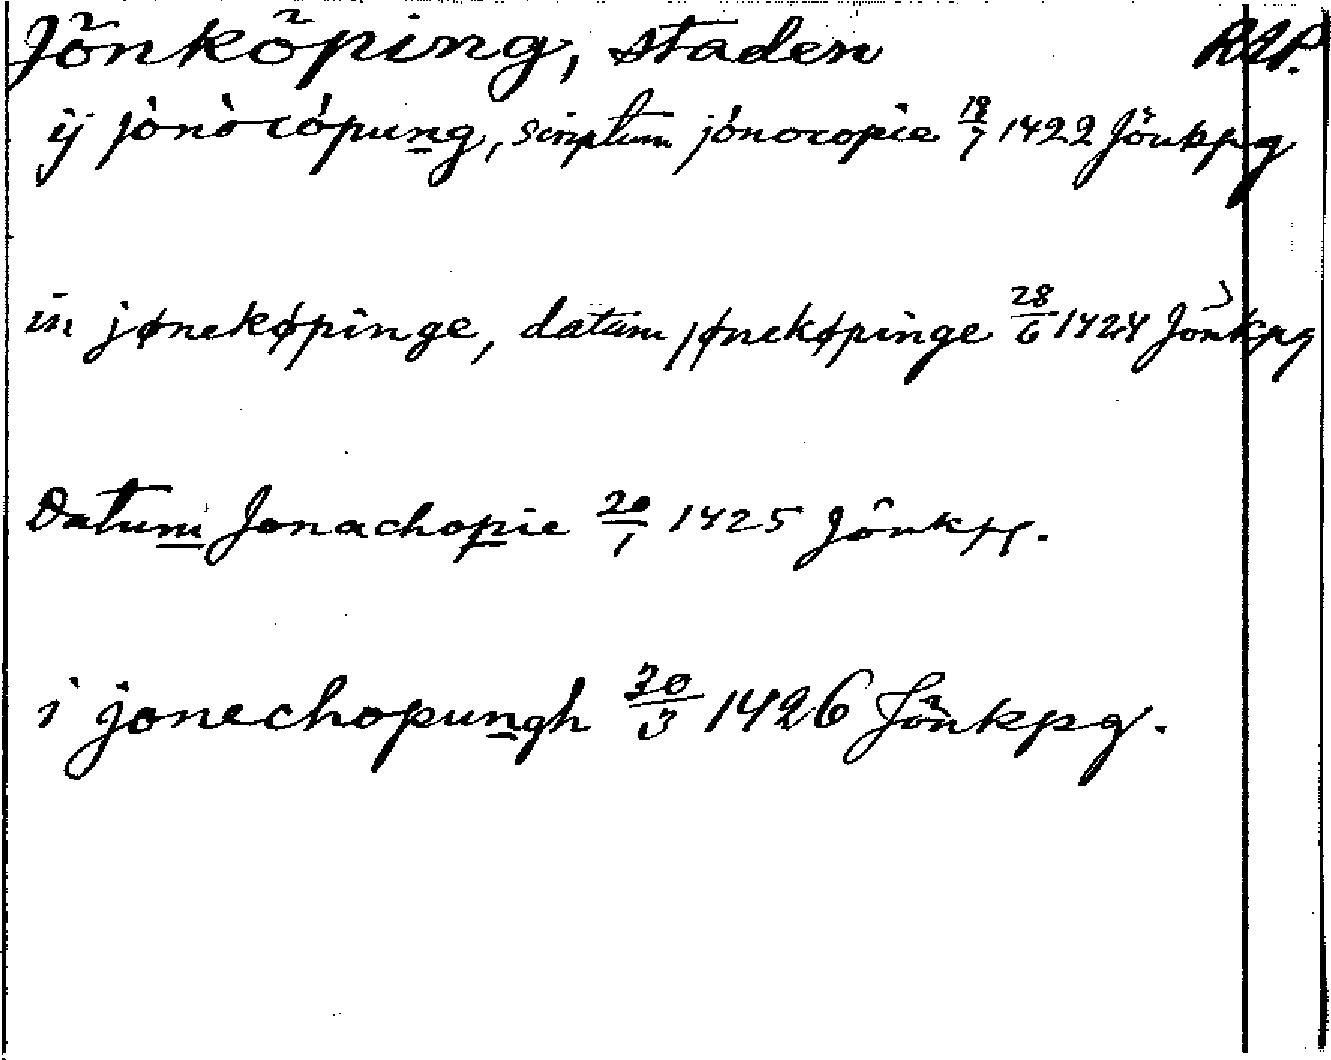 Jönköping, staden RAP.
ij jònòcópung, scriptum jónocopie 18/7 1422 Jönkpg
in jønekøpinge, datum jønekøpinge 28/6 1424 Jönkpg
Datum Jonachopie 20/1 1425 Jönkpg.
i jonechopungh 30/3 1426 Jönkpg.